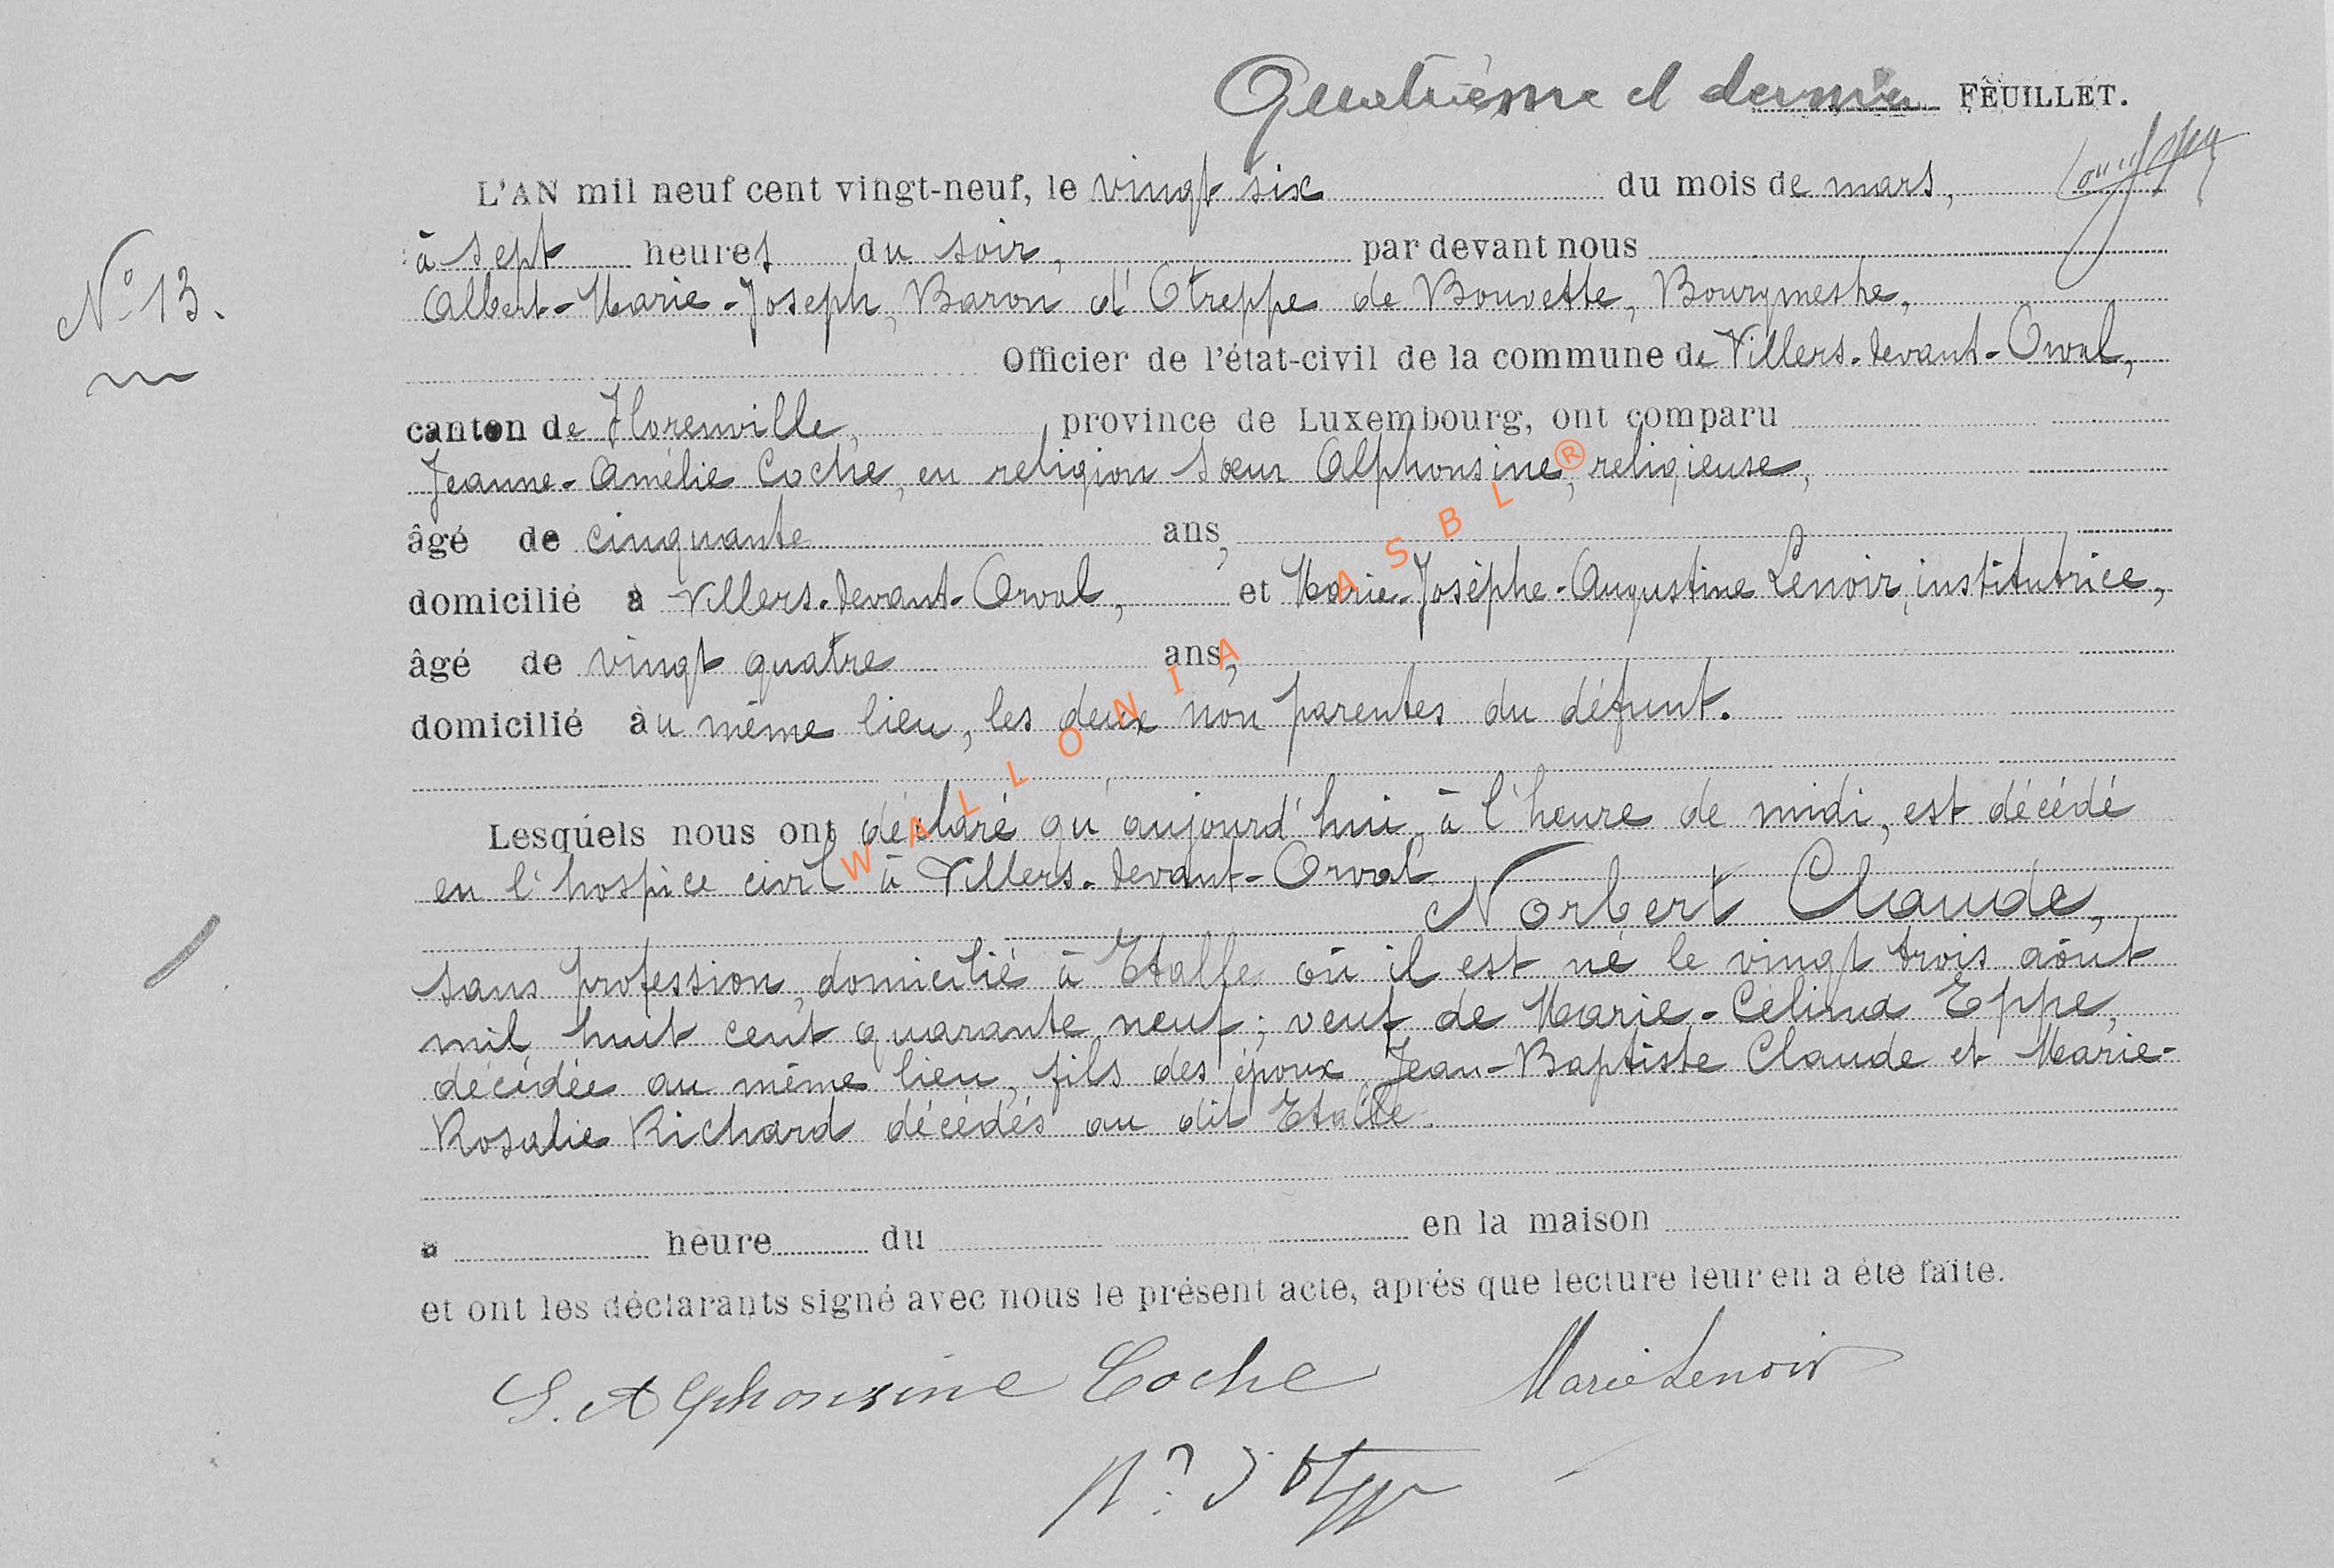 Quatrième et dernier FEUILLET.
L'AN mil neuf cent vingt-neuf, le vingt six du mois de mars,
à sept heures du soir, par devant nous
N° 13.
Albert-Marie-Joseph, Baron d'Otreppe de Bouvette, Bourgmestre,
Officier de l'état-civil de la commune de Villers-devant-Orval,
canton de Florenville, province de Luxembourg, ont comparu
Jeanne-Amélie Coche, en religion sœur Alphonsine, religieuse,
âgé de cinquante ans,
domicilié à Villers-devant-Orval, et Marie-Josèphe-Augustine Lenoir, institutrice,
âgé de vingt quatre ans,
domicilié au même lieu, les deux non parentes du défunt.
Lesquels nous ont déclaré qu'aujourd'hui, à l'heure de midi, est décédé
en l'hospice civil à Villers-devant-Orval
Norbert Claude,
sans profession, domicilié à Etalle où il est né le vingt trois août
mil huit cent quarante neuf; veuf de Marie-Célina Eppe,
décédée au même lieu, fils des époux Jean-Baptiste Claude et Marie-
Rosalie Richard décédés au dit Etalle.
à heure du en la maison
et ont les déclarants signé avec nous le présent acte, après que lecture leur en a été faite.
S. Alphonsine Coche Marie Lenoir
WALLONIA ASBL ®